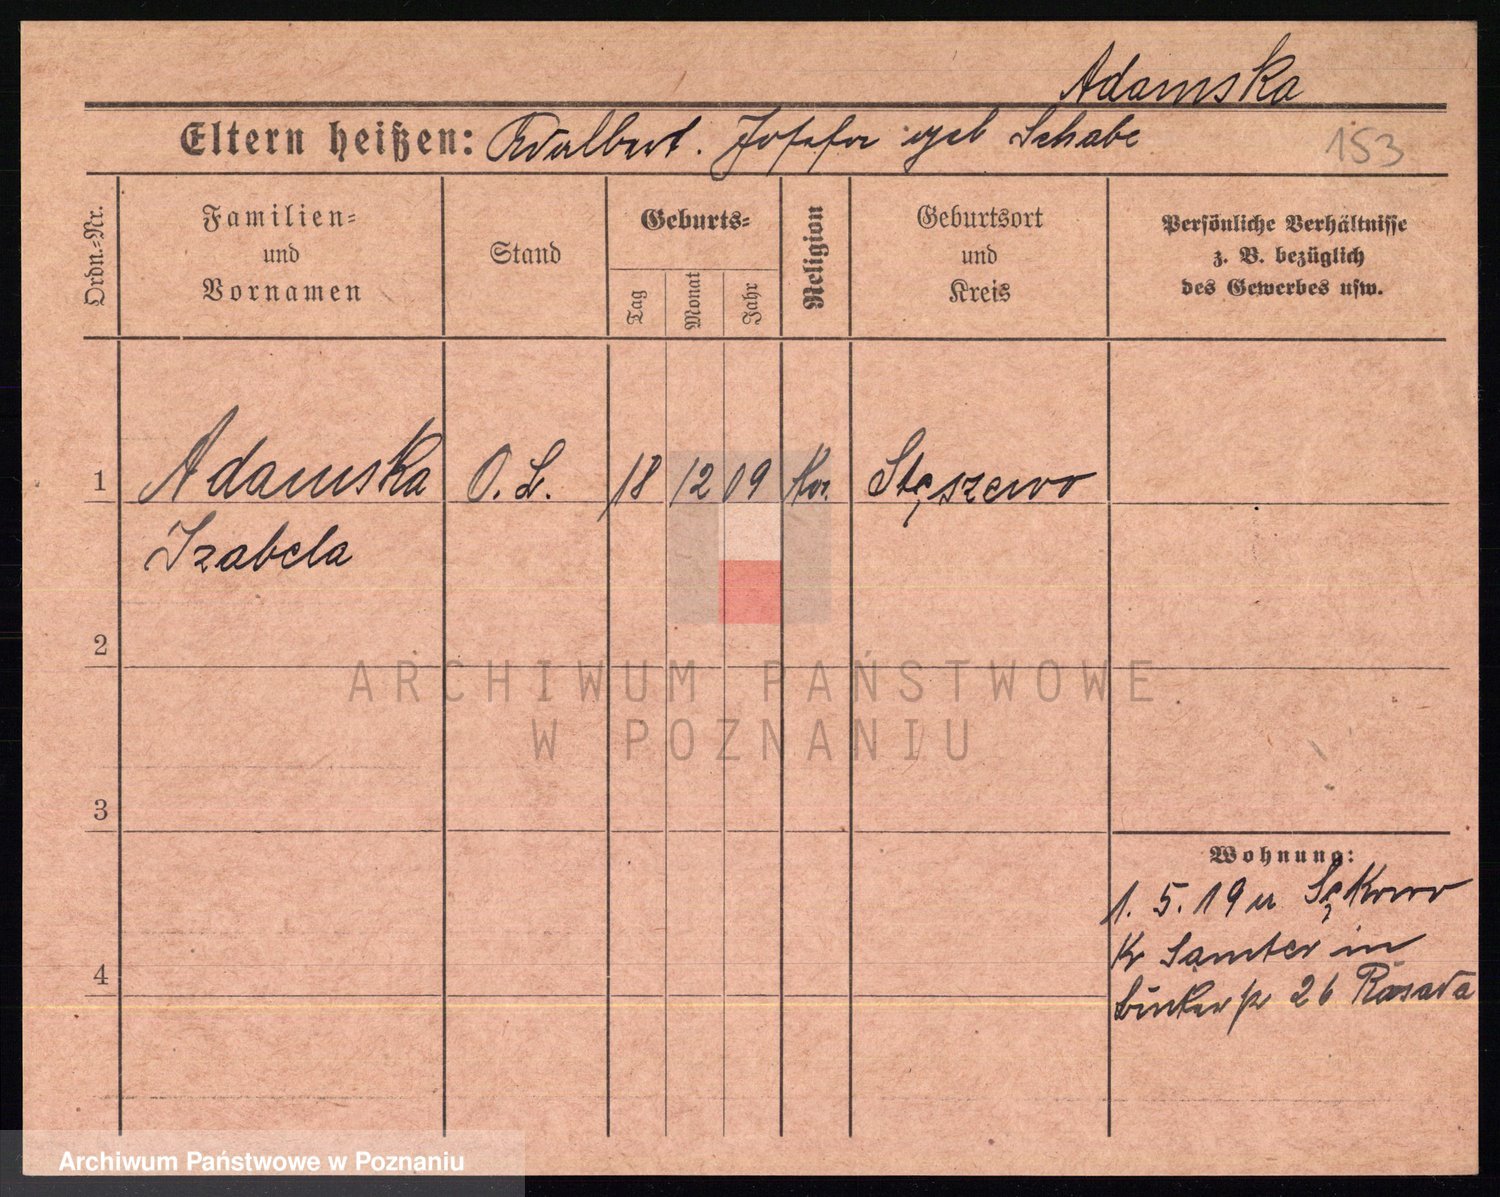 Adamska
Eltern heißen: Adalbert. Josefa geb Schabe
153
Ordn.-Nr.
Familien-
und
Vornamen
Stand
Geburts-
Tag
Monat
Jahr
Religion
Geburtsort
und
Kreis
Persönliche Verhältnisse
z. B. bezüglich
des Gewerbes usw.
1 Adamska O. L. 18 12 09 Stęszewo
Izabela
2
ARCHIWUM PAŃSTWOWE
W POZNANIU
3
Wohnung:
1. 5. 19 Sękowo
4
Kr Samter in
26
Archiwum Państwowe w Poznaniu